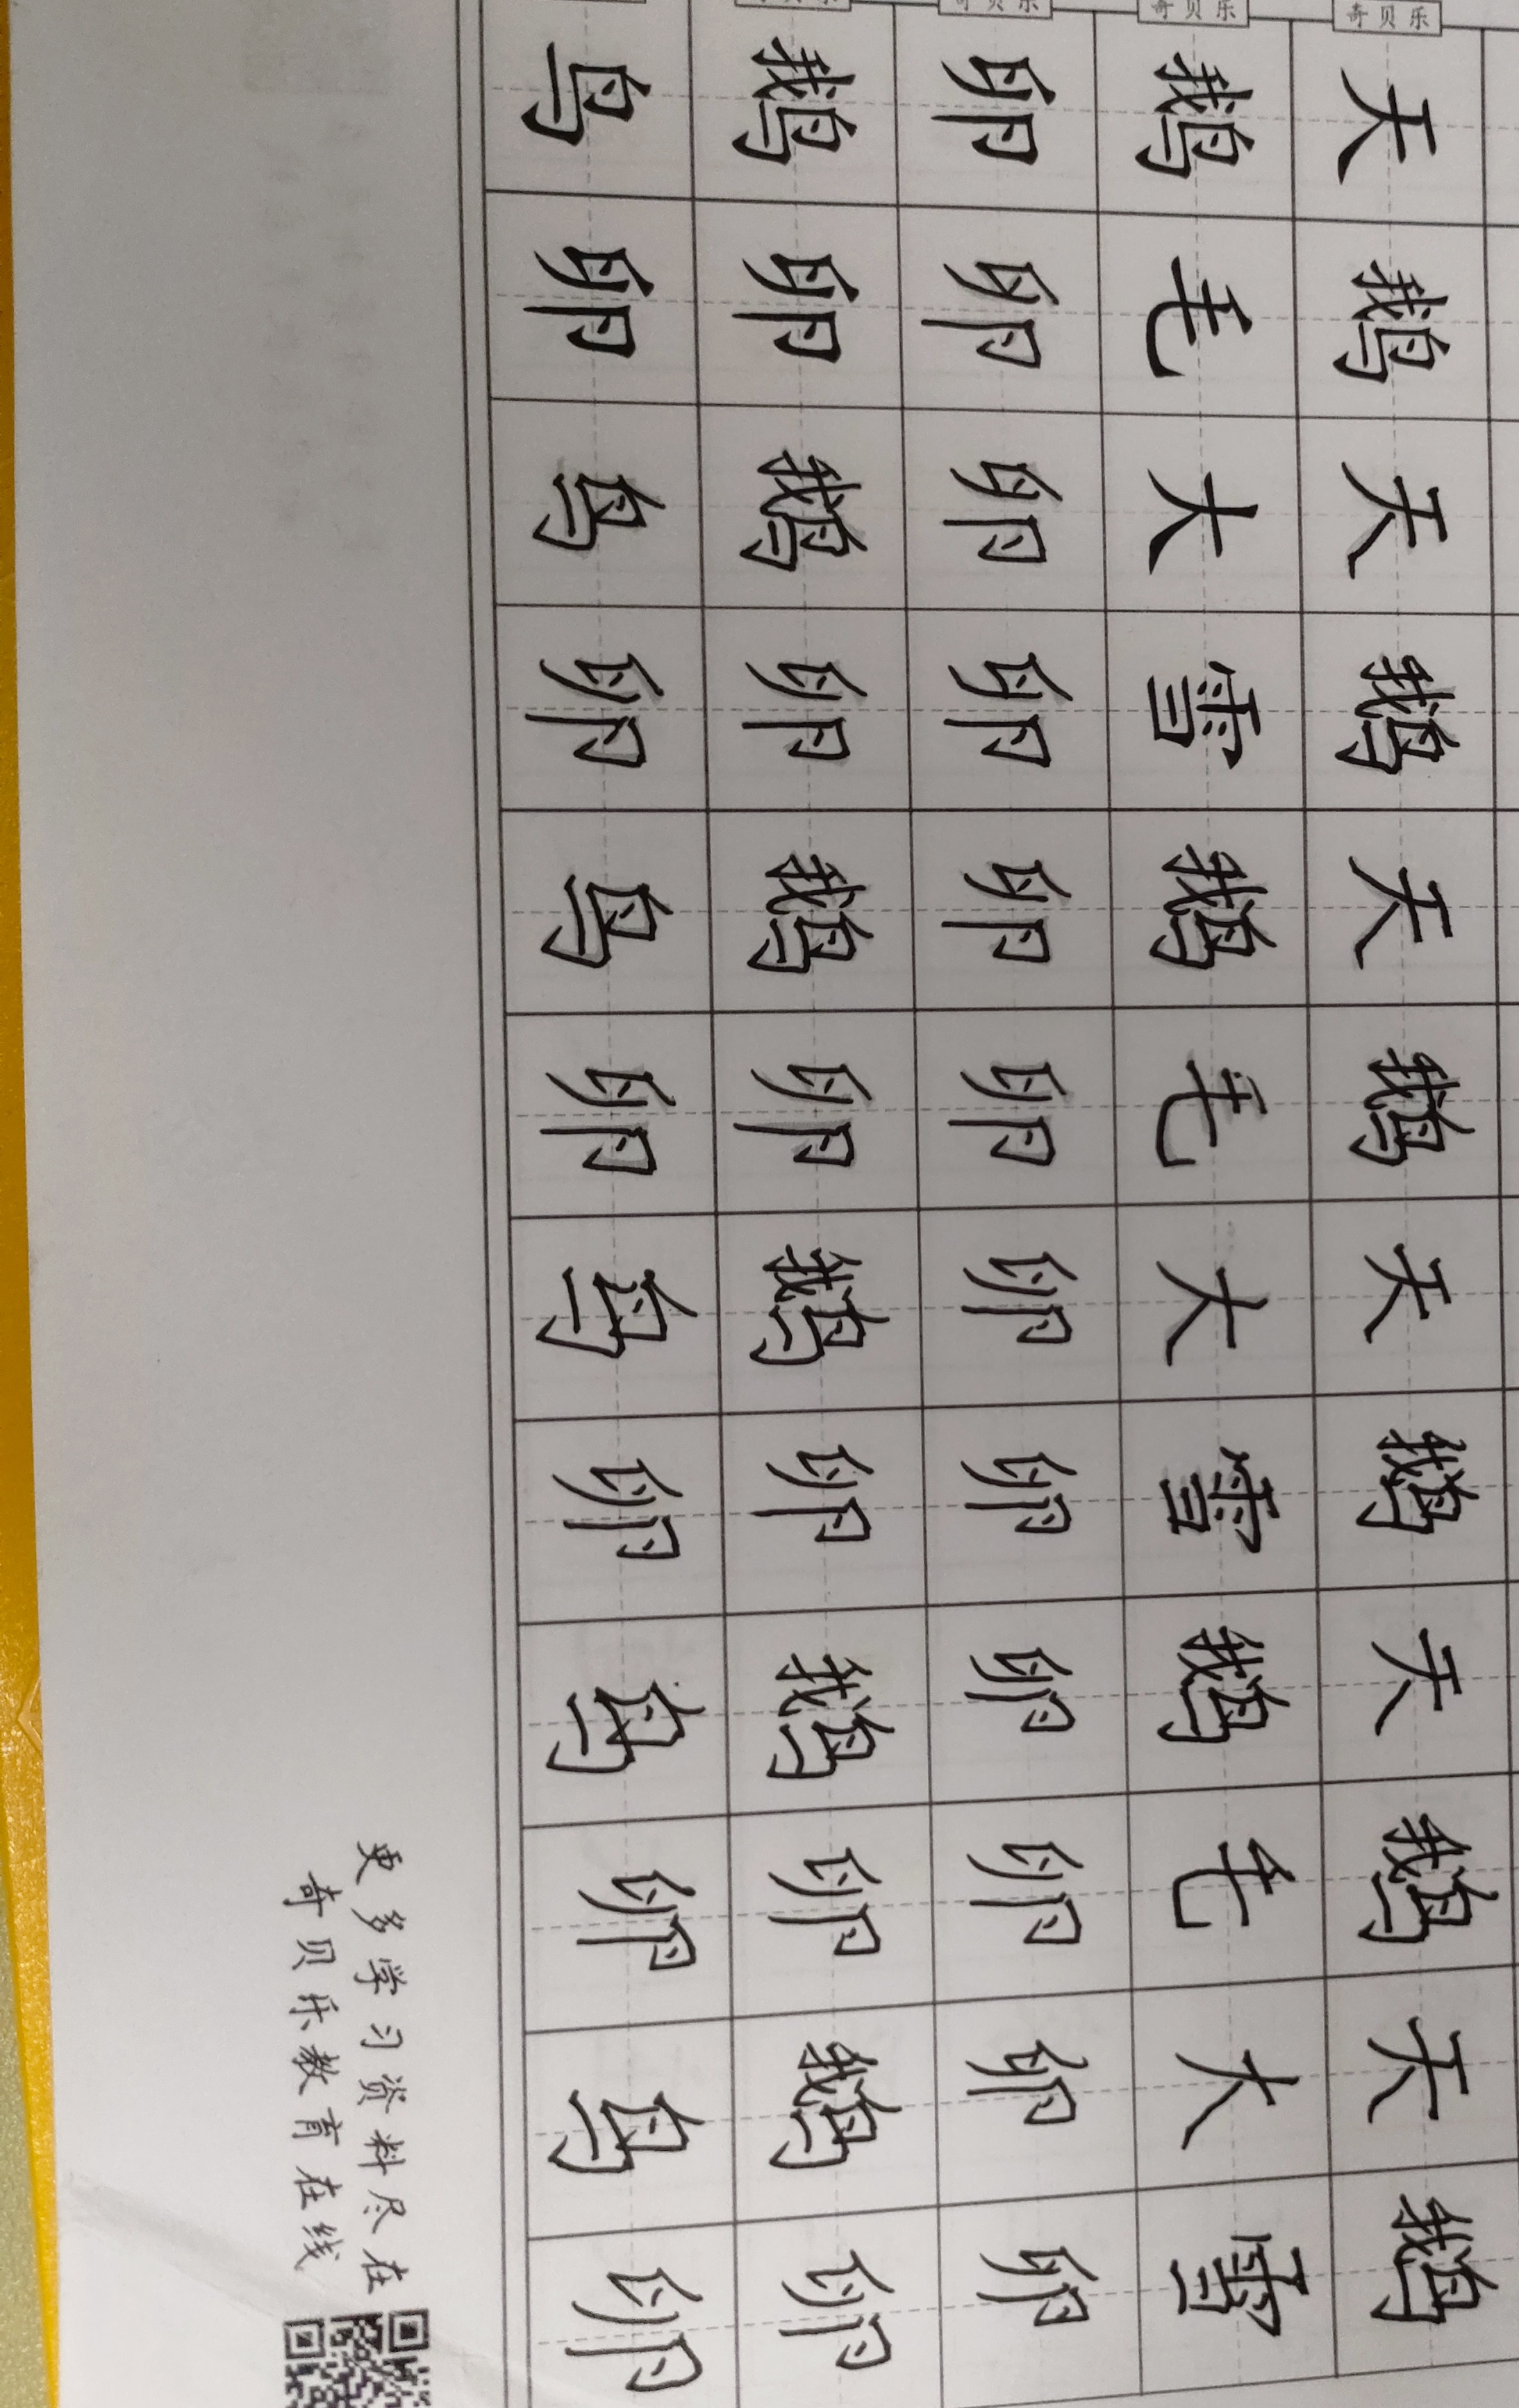 奇贝乐
天鹅天鹅天鹅天鹅天鹅天鹅
奇贝乐
鹅毛大雪鹅毛大雪鹅毛大雪
奇贝乐
卵卵卵卵卵卵卵卵卵卵卵卵
鹅卵鹅卵鹅卵鹅卵鹅卵鹅卵
鸟卵鸟卵鸟卵鸟卵鸟卵鸟卵
更多学习资料尽在
奇贝乐教育在线